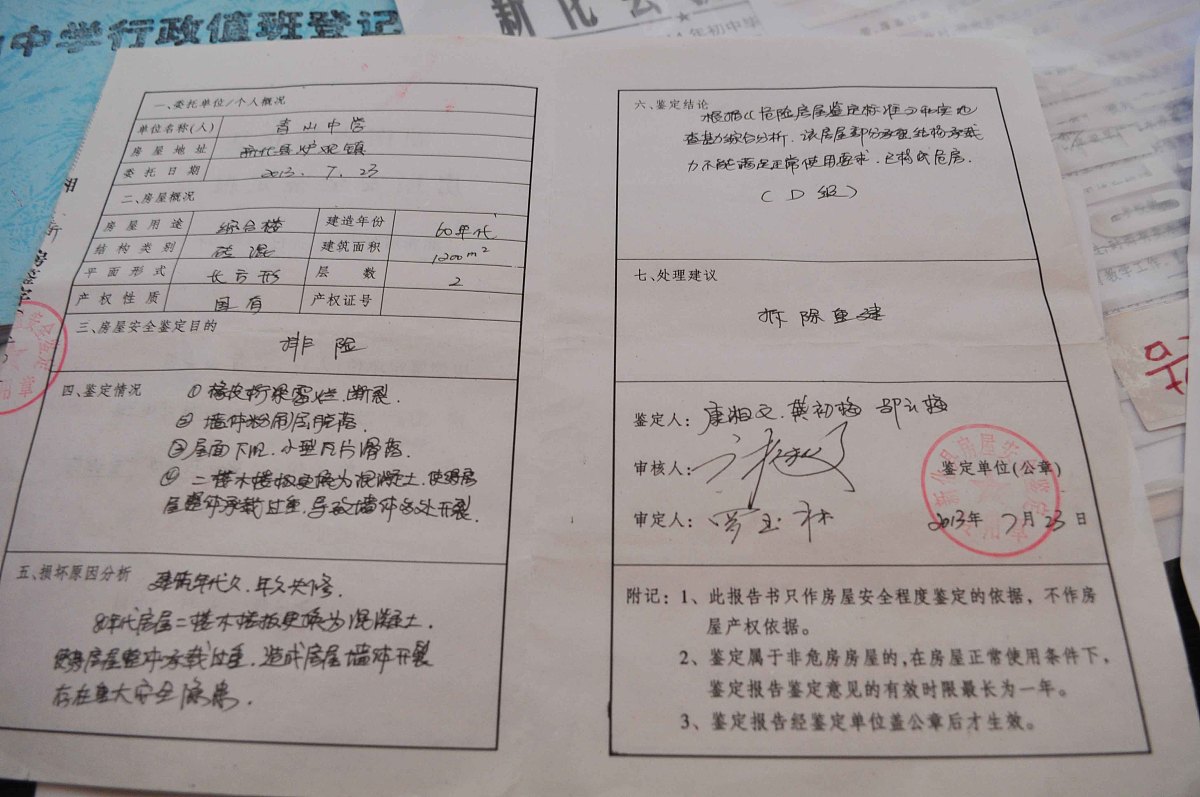 中学行政值班登记
新化会
年初中学
一、委托单位/个人概况
单位名称(人) 青山中学
房屋地址 新化县炉观镇
委托日期 2013. 7. 23
二、房屋概况
房屋用途 综合楼 建造年份 60年代
结构类别 砖混 建筑面积 1200m²
平面形式 长方形 层数 2
产权性质 国有 产权证号
三、房屋安全鉴定目的
排险
四、鉴定情况 ①檩皮桁梁腐烂、断裂.
②墙体粉刷层脱落.
③屋面下凹、小型瓦片滑落.
④二楼木楼板更换为混凝土,使得房
屋整体承载过重,导致墙体多处开裂.
五、损坏原因分析 建筑年代久、年久失修.
80年代房屋二楼木楼板更换为混凝土.
使得房屋整体承载过重,造成房屋墙体开裂
存在重大安全隐患.
六、鉴定结论
根据《危险房屋鉴定标准》和实地
查勘综合分析,该房屋部分承重结构承载
力不能满足正常使用要求,已构成危房.
(D级)
七、处理建议
拆除重建
鉴定人:康湘文、龚初梅
审核人:
审定人:罗玉林
鉴定单位(公章)
2013年 7月23日
附记:1、此报告书只作房屋安全程度鉴定的依据,不作房
屋产权依据。
2、鉴定属于非危房房屋的,在房屋正常使用条件下,
鉴定报告鉴定意见的有效时限最长为一年。
3、鉴定报告经鉴定单位盖公章后才生效。